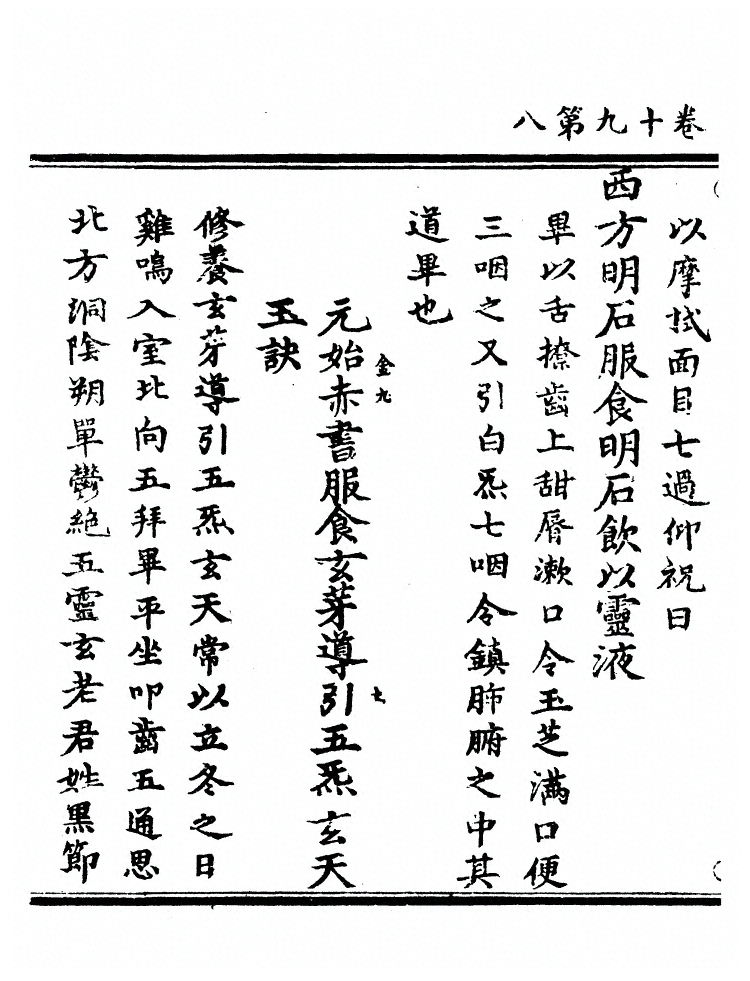 卷十九第八
以摩拭面目七過仰祝曰
西方明石服食明石飲以靈液
畢以舌撩齒上甜脣漱口令玉芝滿口便
三咽之又引白炁七咽令鎮肺腑之中其
道畢也
金九 七
元始赤書服食玄芽導引五炁玄天
玉訣
修養玄芽導引五炁玄天常以立冬之日
雞鳴入室北向五拜畢平坐叩齒五通思
北方洞陰朔單鬱絕五靈玄老君姓黑節